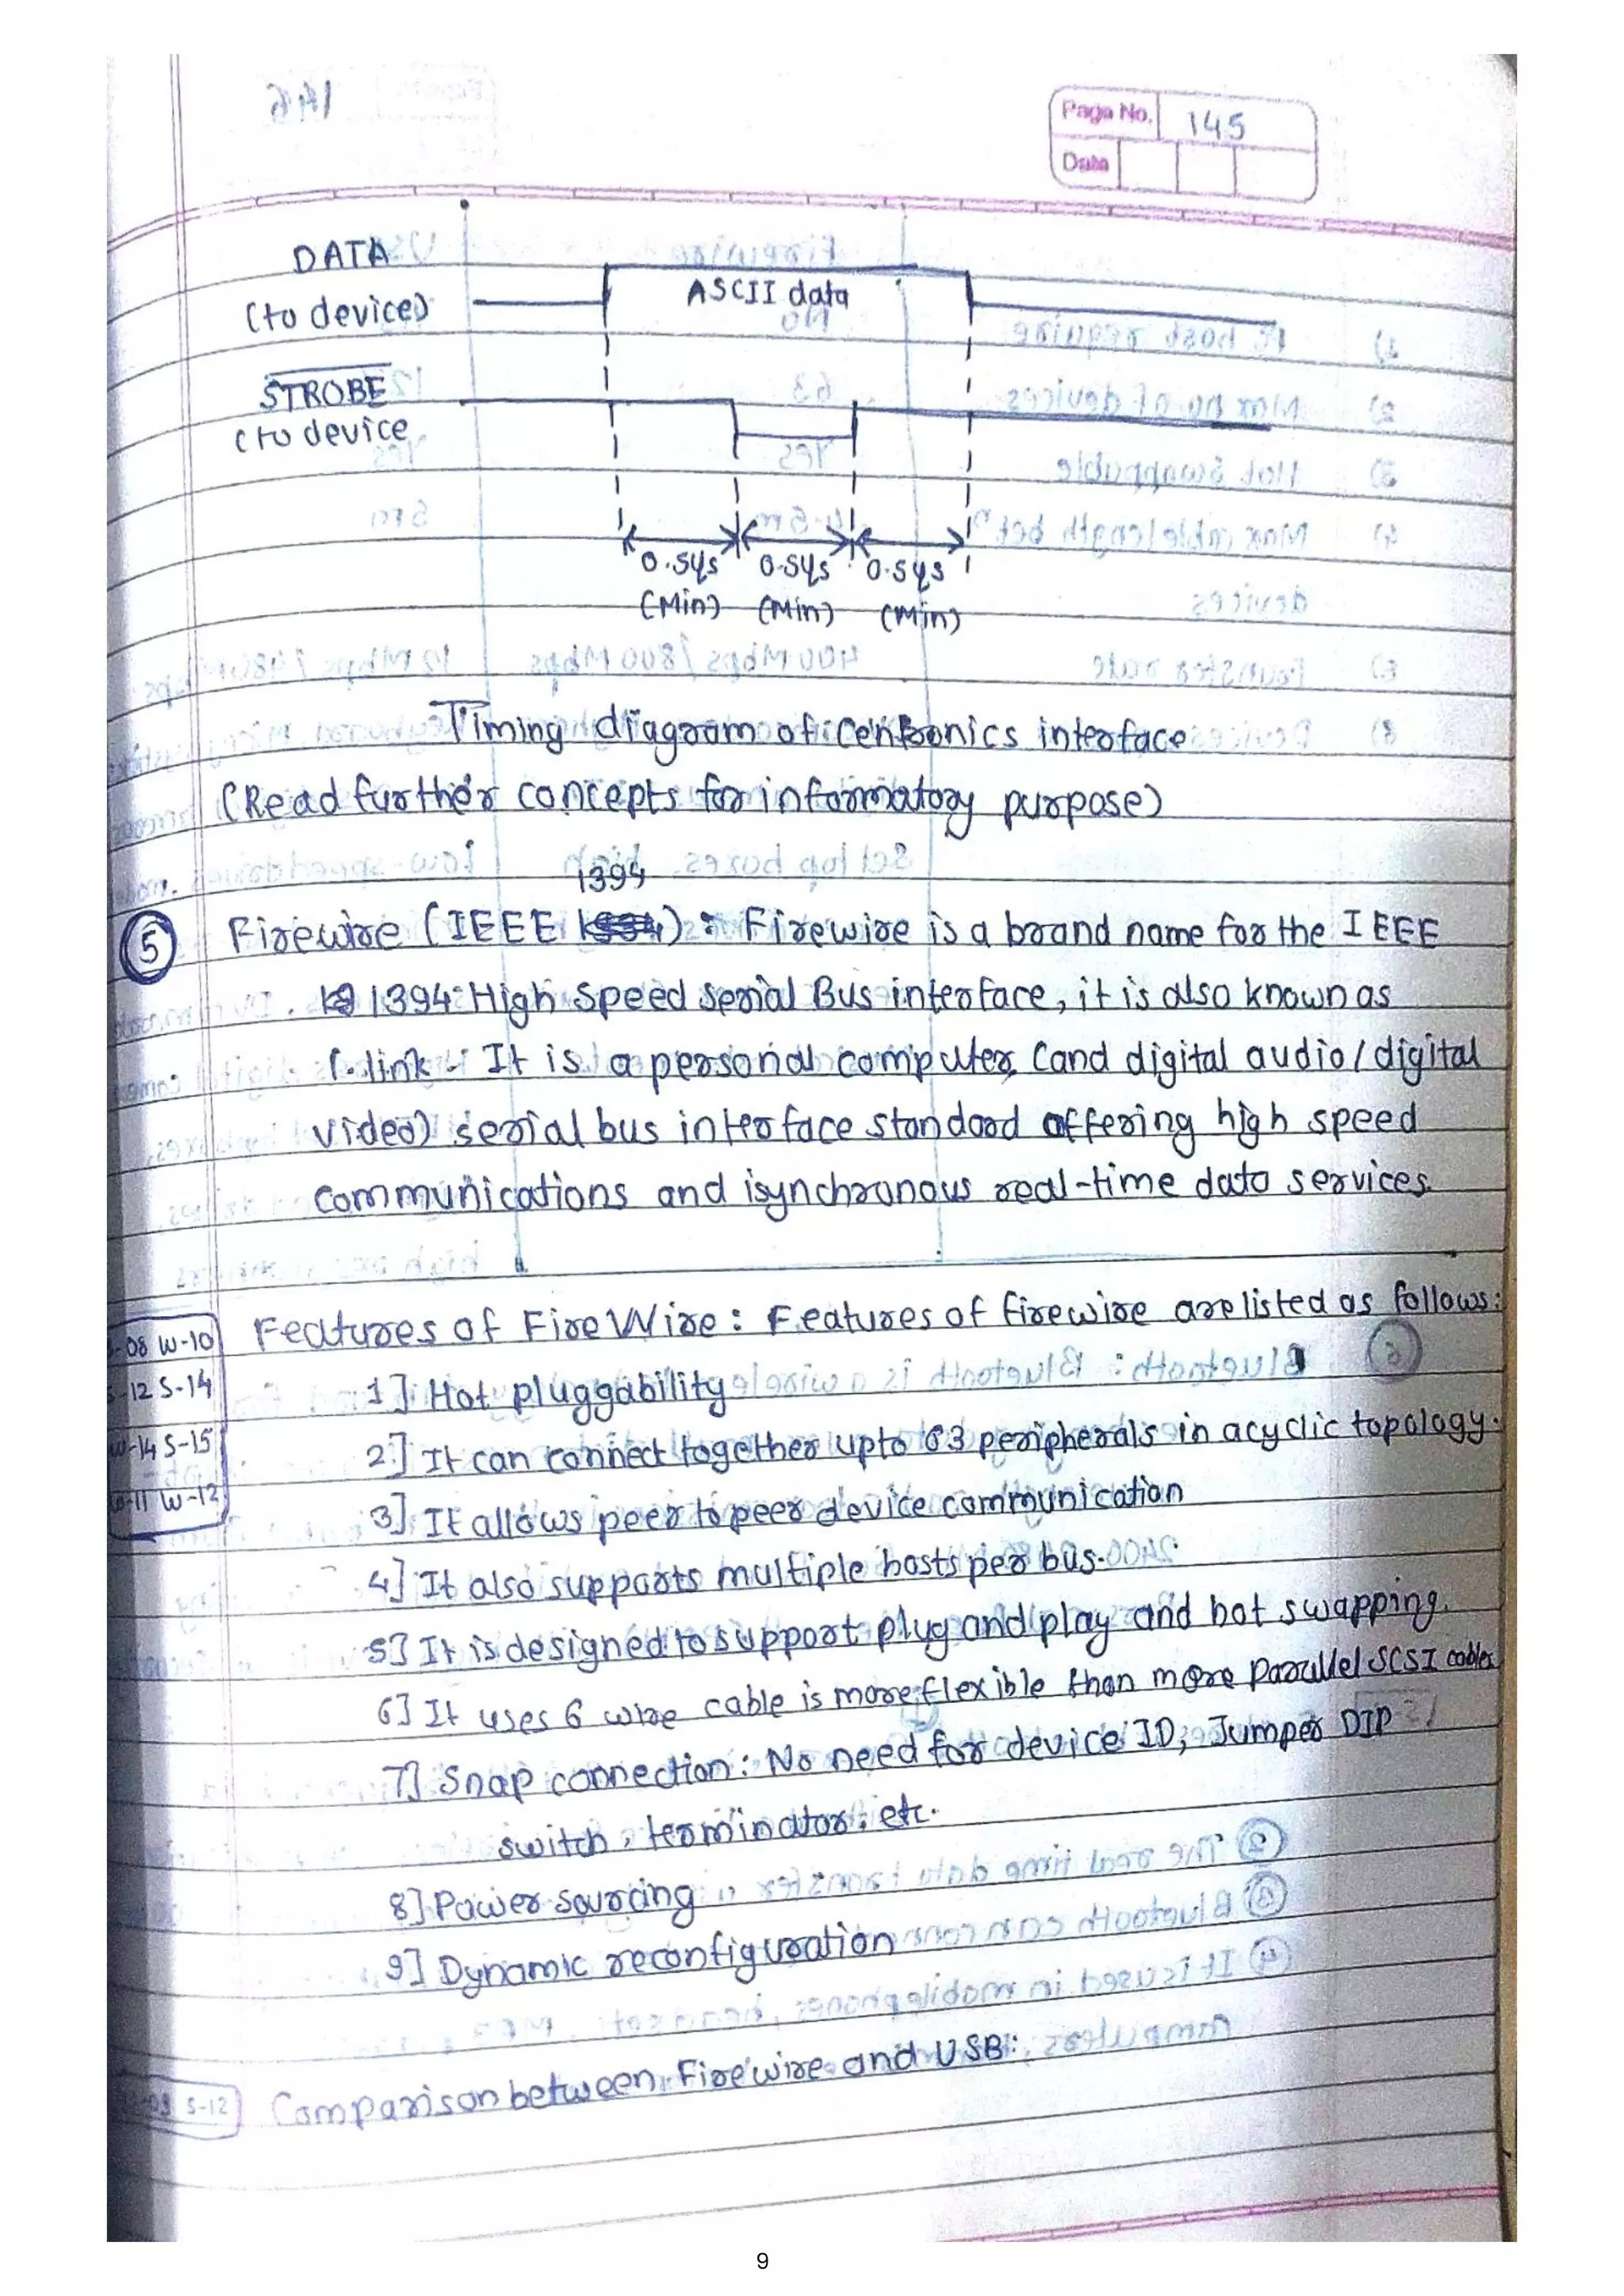 Page No. 145
Date
DATA
(to device)
ASCII data
STROBE
(to device
0.5µs 0.5µs 0.5µs
(Min) (Min) (Min)
Timing diagram of Centronics interface
(Read further concepts for informatory purpose)
1394
⑤ Firewire (IEEE ) : Firewire is a brand name for the IEEE
1394 High Speed Serial Bus interface, it is also known as
i.link. It is a personal computer (and digital audio/digital
video) serial bus interface standard offering high speed
communications and isynchronous real-time data services.
-08 W-10
-12 S-14
W-14 S-15
-11 W-12
Features of FireWire : Features of firewire are listed as follows:
1] Hot pluggability
2] It can connect together upto 63 peripherals in acyclic topology.
3] It allows peer to peer device communication
4] It also supports multiple hosts per bus.
5] It is designed to support plug and play and hot swapping.
6] It uses 6 wire cable is more flexible than more parallel SCSI cables
7] Snap connection : No need for device ID, Jumper DIP
switch, terminator, etc.
8] Power sourcing
9] Dynamic reconfiguration
S-12
Comparison between Firewire and USB:
9